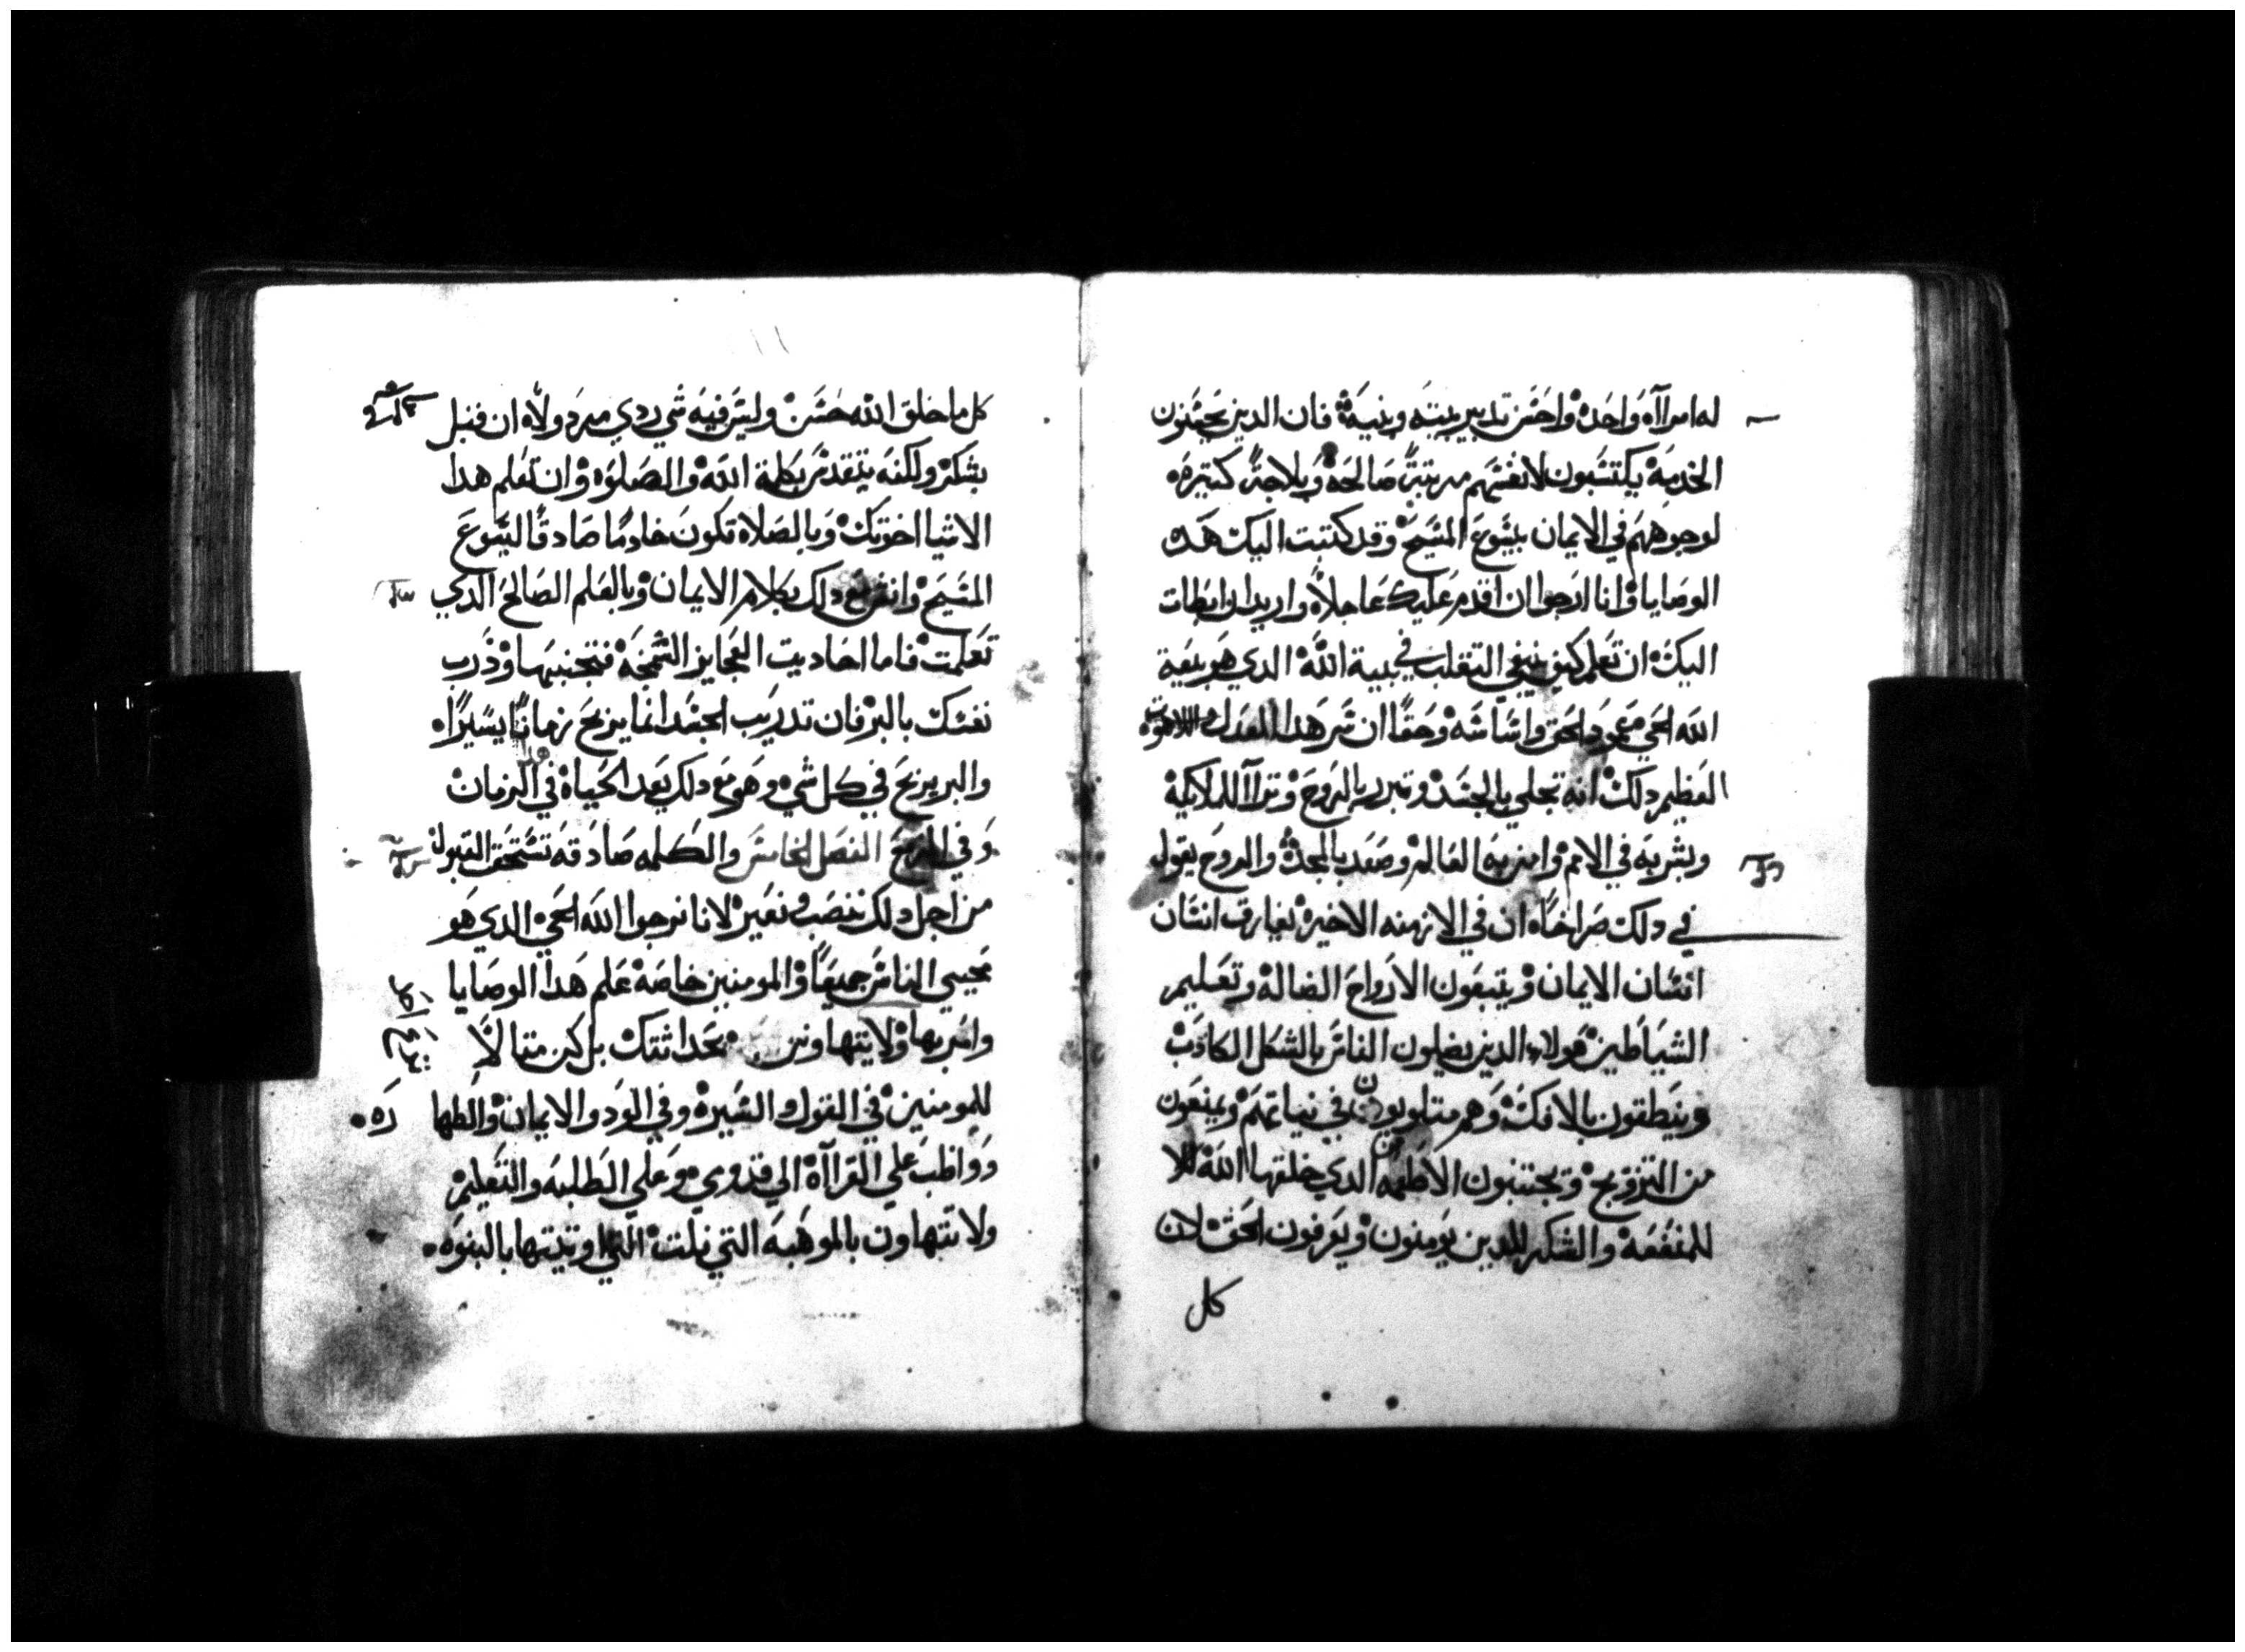 له امراآه واحده واحسن تدبير بيته وبنيه فان الدين يحسنون
الخدمه يكتسبون لانفسهم مرتبة صالحه وبلاجة كتيره
لوجوههم في الايمان بيسوع المسيح وقد كتبت اليك هده
الوصايا وانا ارجوا ان اقدم عليك عاجلاً واريد ان ابطات
اليك ان تعلم كيف ينبغي التقلب في بيية الله الدي هو بيعة
الله الحي عمود الحق واساسه وحقاً ان سر هدا العدل
العظيم دلك انه تجلي بالجسد وتبرر بالروح وتراآ للملايكة
وبشر به في الامم وامن به العالم وصعد بالمجد والروح يقول
في دلك صراخاً ان في الازمنه الاخيره يفارق انسان
انسان الايمان ويتبعون الارواح الضاله وتعليم
الشياطين هولاء الدين يضلون الناس بالشكل الكادب
وينطقون بالافك وهم متلوبون في نياتهم ويمنعون
من التزويج ويجتنبون الاطعمه الدي خلقها الله
للمنفعه والشكر للدين يومنون ويعرفون الحق لان
كل
كل ما خلق الله حسن وليس فيه شي ردي مردولاً ان قبل
بشكر ولكنه يتقدس بكلمة الله والصلوه وان تعلم هدا
الاشيا اخوتك وبالصلاه تكون خادماً صادقاً ليسوع
المسيح وانت مع دلك بكلام الايمان وبالعلم الصالح الدي
تعلمت فاما احاديت العجايز السمجه فتجنبها ودرب
نفسك بالبر فان تدريب الجسد انما يربح زماناً يسيراً
والبر يربح في كل شي وهو مع دلك بعد الحياه في الزمان
وفي الفصل الخامس والكلمه صادقه تستحق القبول
من اجل دلك ننصب ونعير لانا نرجوا الله الحي الدي هو
محيي الناس جميعاً والمومنين خاصه علم هدا الوصايا
وامر بها ولا يتهاونن بحداثتك بل كن متالاً
للمومنين في القول والسيره وفي الود والايمان والطها ره
وواظب علي القراآه الي قدومي وعلي الطلبه والتعليم
ولا تتهاون بالموهبه التي نلت التي اوتيتها بالبنوه